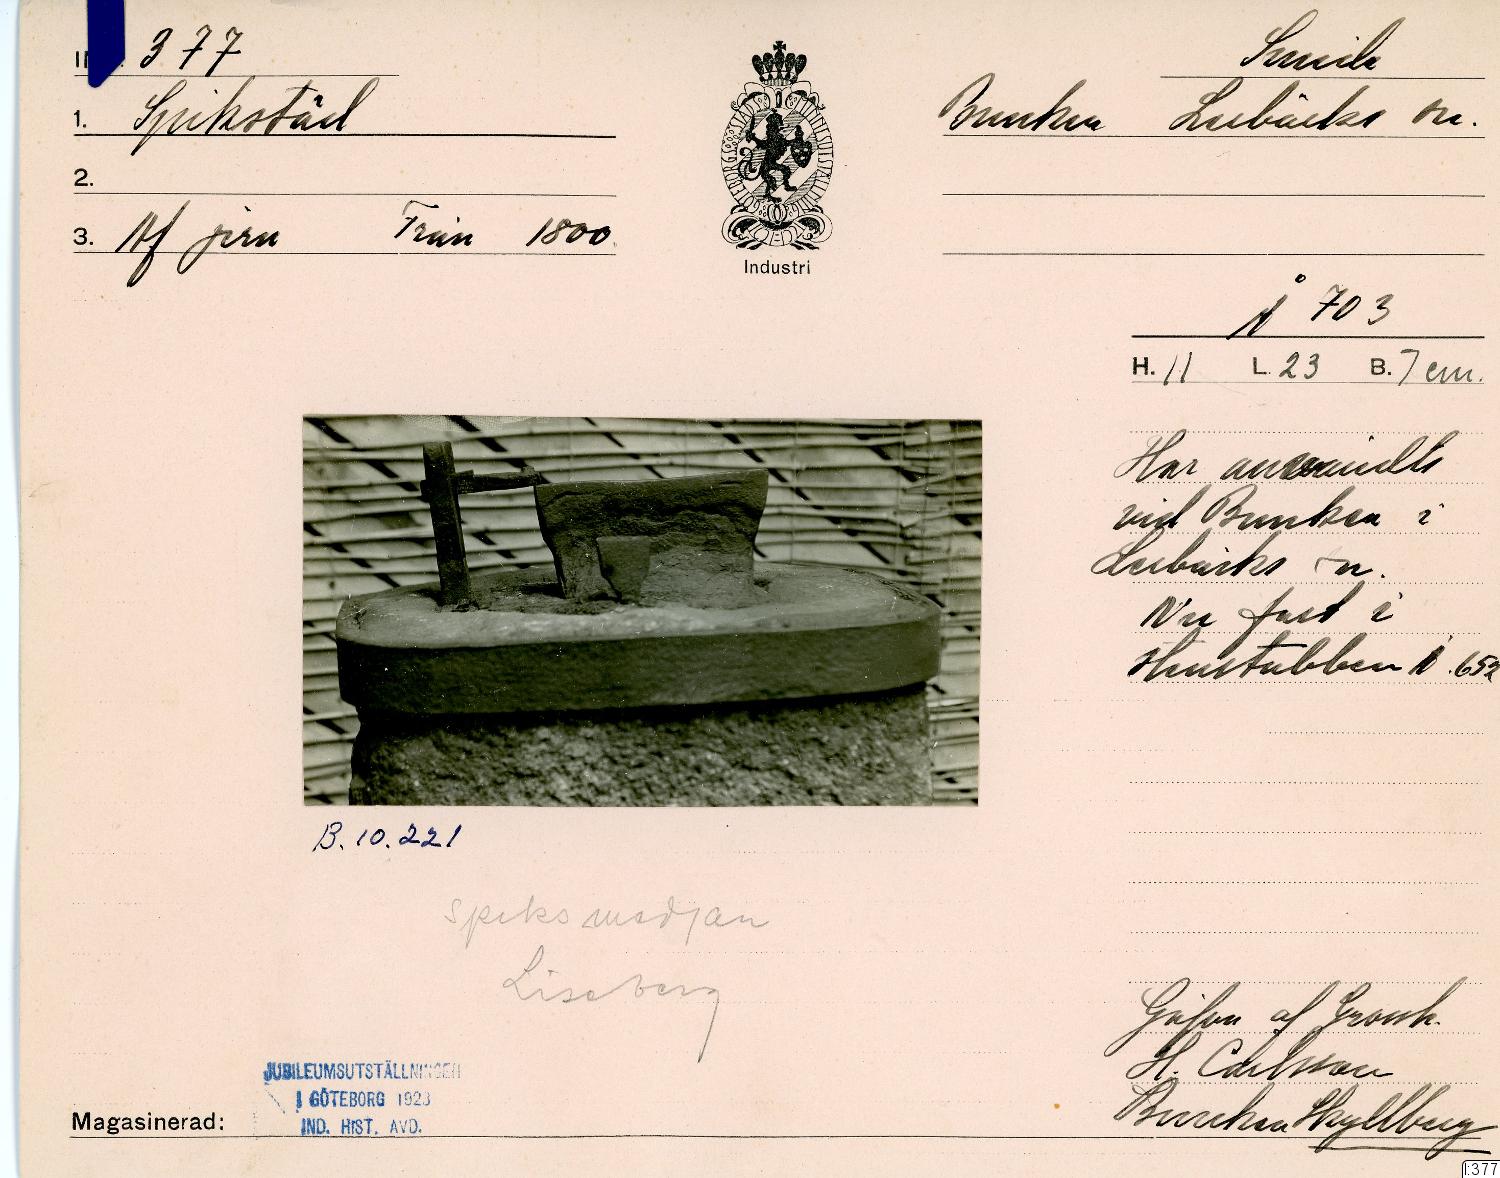 377
1. Spikstäd
2.
3. Af jern Från 1800.
GÖTEBORGS STADS MINNESUTSTÄLLNING
Industri
Smide
Bruken Lerbäcks sn.
Å 703
H. 11 L. 23 B. 7 cm.
Har användts
vid Bruken i
Lerbäcks sn.
Nu fast i
stenstubben Å .652
B.10.221
Spiksmedjan
Liseberg
Gåfva af Grossh.
H. Carlsson
Bruken Skyllberg
JUBILEUMSUTSTÄLLNINGEN
I GÖTEBORG 1923
IND. HIST. AVD.
Magasinerad:
I:377